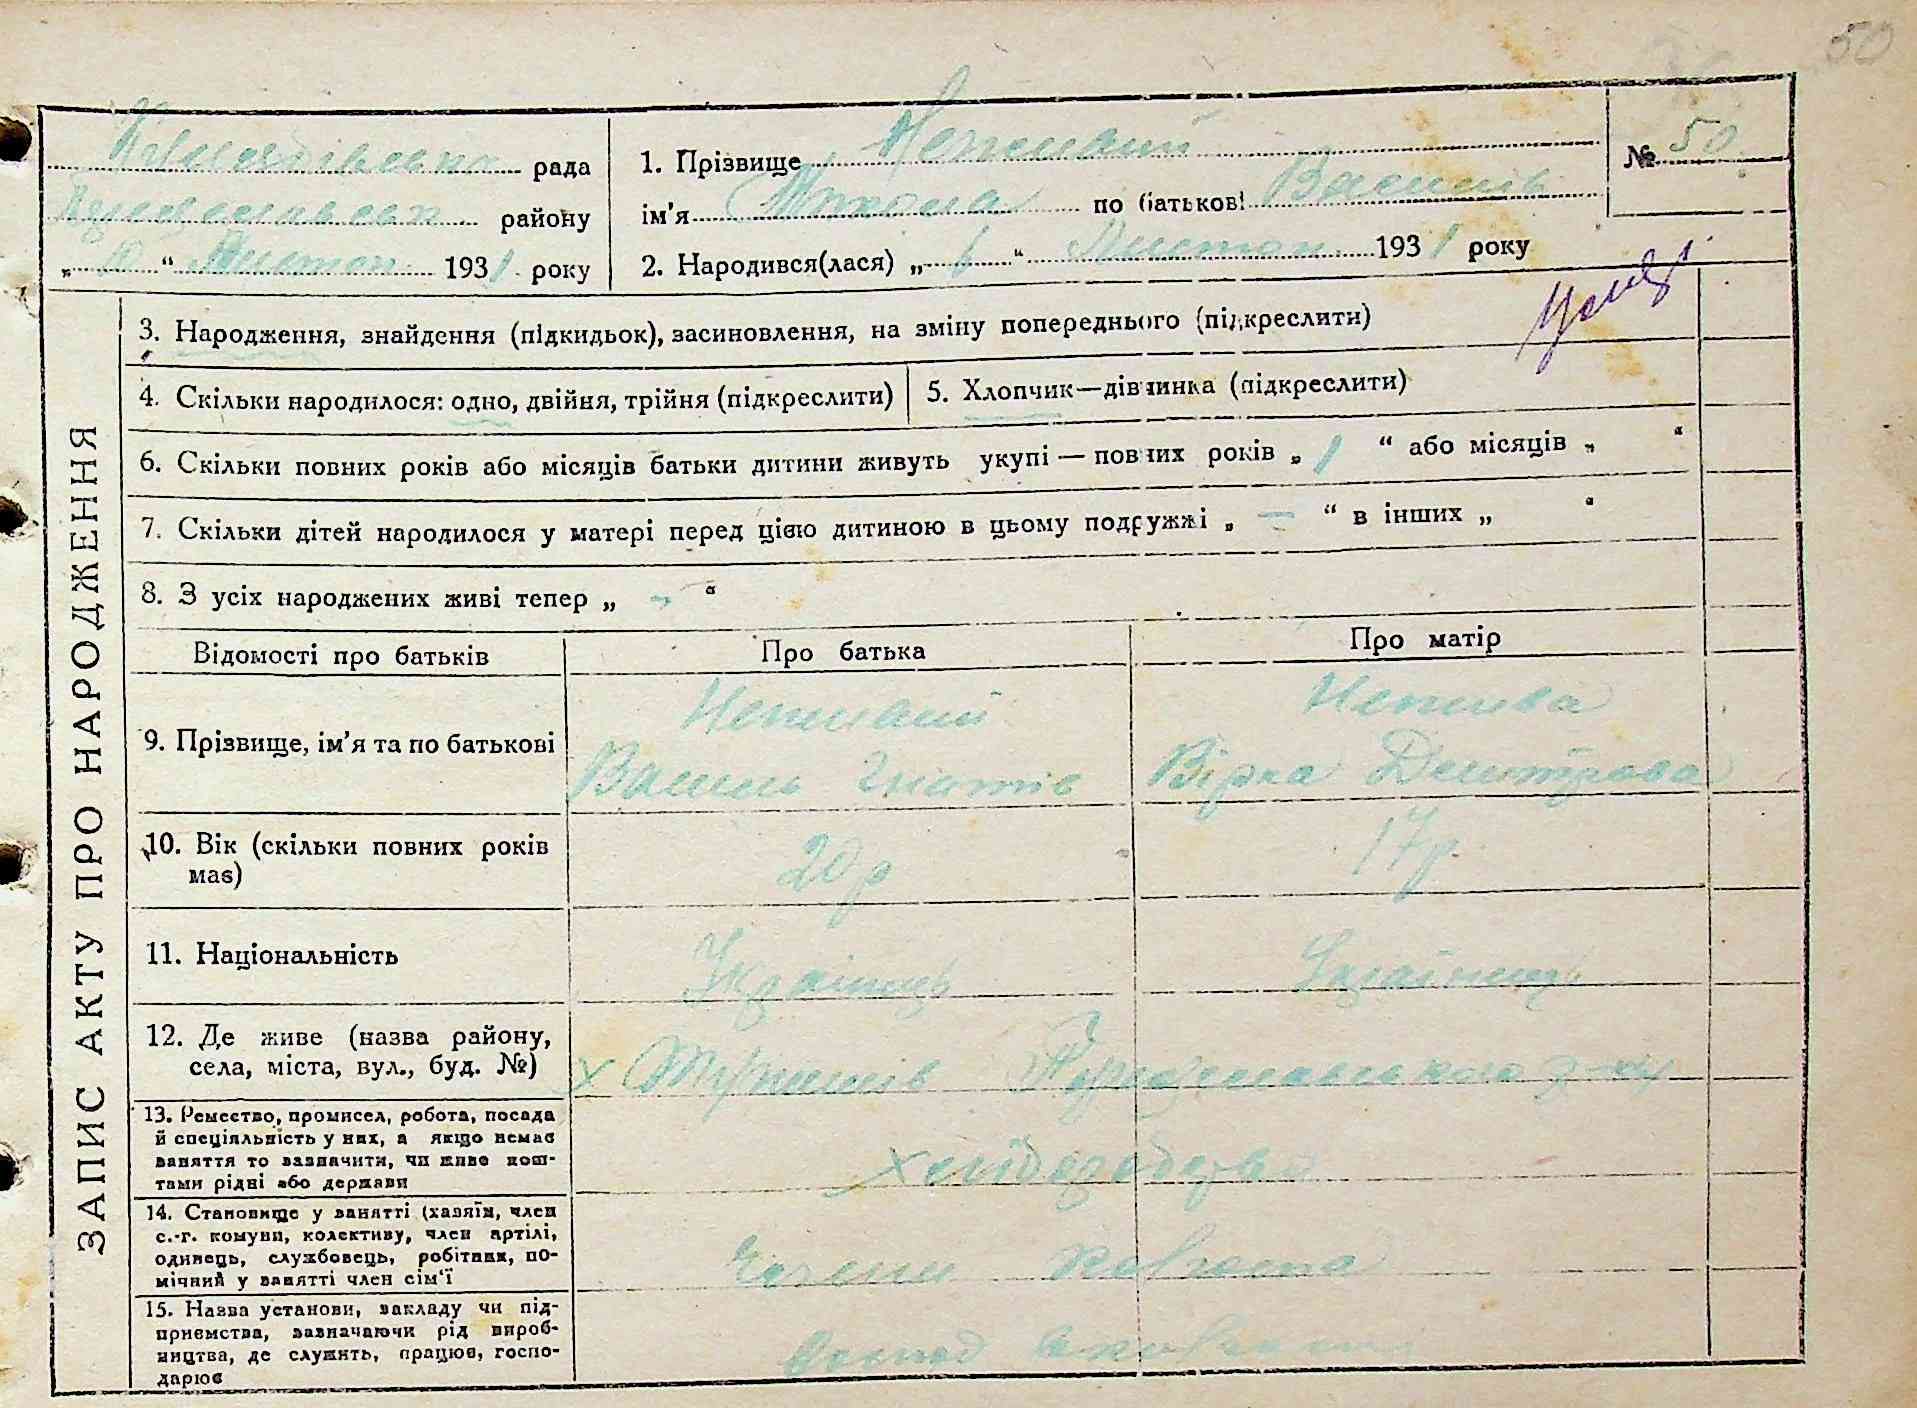 50
рада
району
„ “ Листоп. 1931 року
1. Прізвище
ім'я Микола по батькові Василів
2. Народився(лася) „ 6 “ Листоп. 1931 року
№ 50.
3. Народження, знайдення (підкидьок), засиновлення, на зміну попереднього (підкреслити)
4. Скільки народилося: одно, двійня, трійня (підкреслити)
5. Хлопчик—дівчинка (підкреслити)
6. Скільки повних років або місяців батьки дитини живуть укупі — повних років „ 1 “ або місяців „ “
7. Скільки дітей народилося у матері перед цією дитиною в цьому подружжі „ — “ в інших „ “
8. З усіх народжених живі тепер „ - “
ЗАПИС АКТУ ПРО НАРОДЖЕННЯ
Відомості про батьків
Про батька
Про матір
9. Прізвище, ім'я та по батькові
Василь Гнатів
Вірка Дмитрова
10. Вік (скільки повних років
має)
20 р
17 р.
11. Національність
Українець
12. Де живе (назва району,
села, міста, вул., буд. №)
13. Ремество, промисел, робота, посада
й спеціяльність у них, а якщо немає
заняття то зазначити, чи живе кош-
тами рідні або держави
хліборобство
14. Становище у занятті (хазяїн, член
с.-г. комуни, колективу, член артілі,
одинець, службовець, робітник, по-
мічний у занятті член сім'ї
Члени колгоспа
15. Назва установи, закладу чи під-
приємства, зазначаючи рід вироб-
ництва, де служить, працює, госпо-
дарює